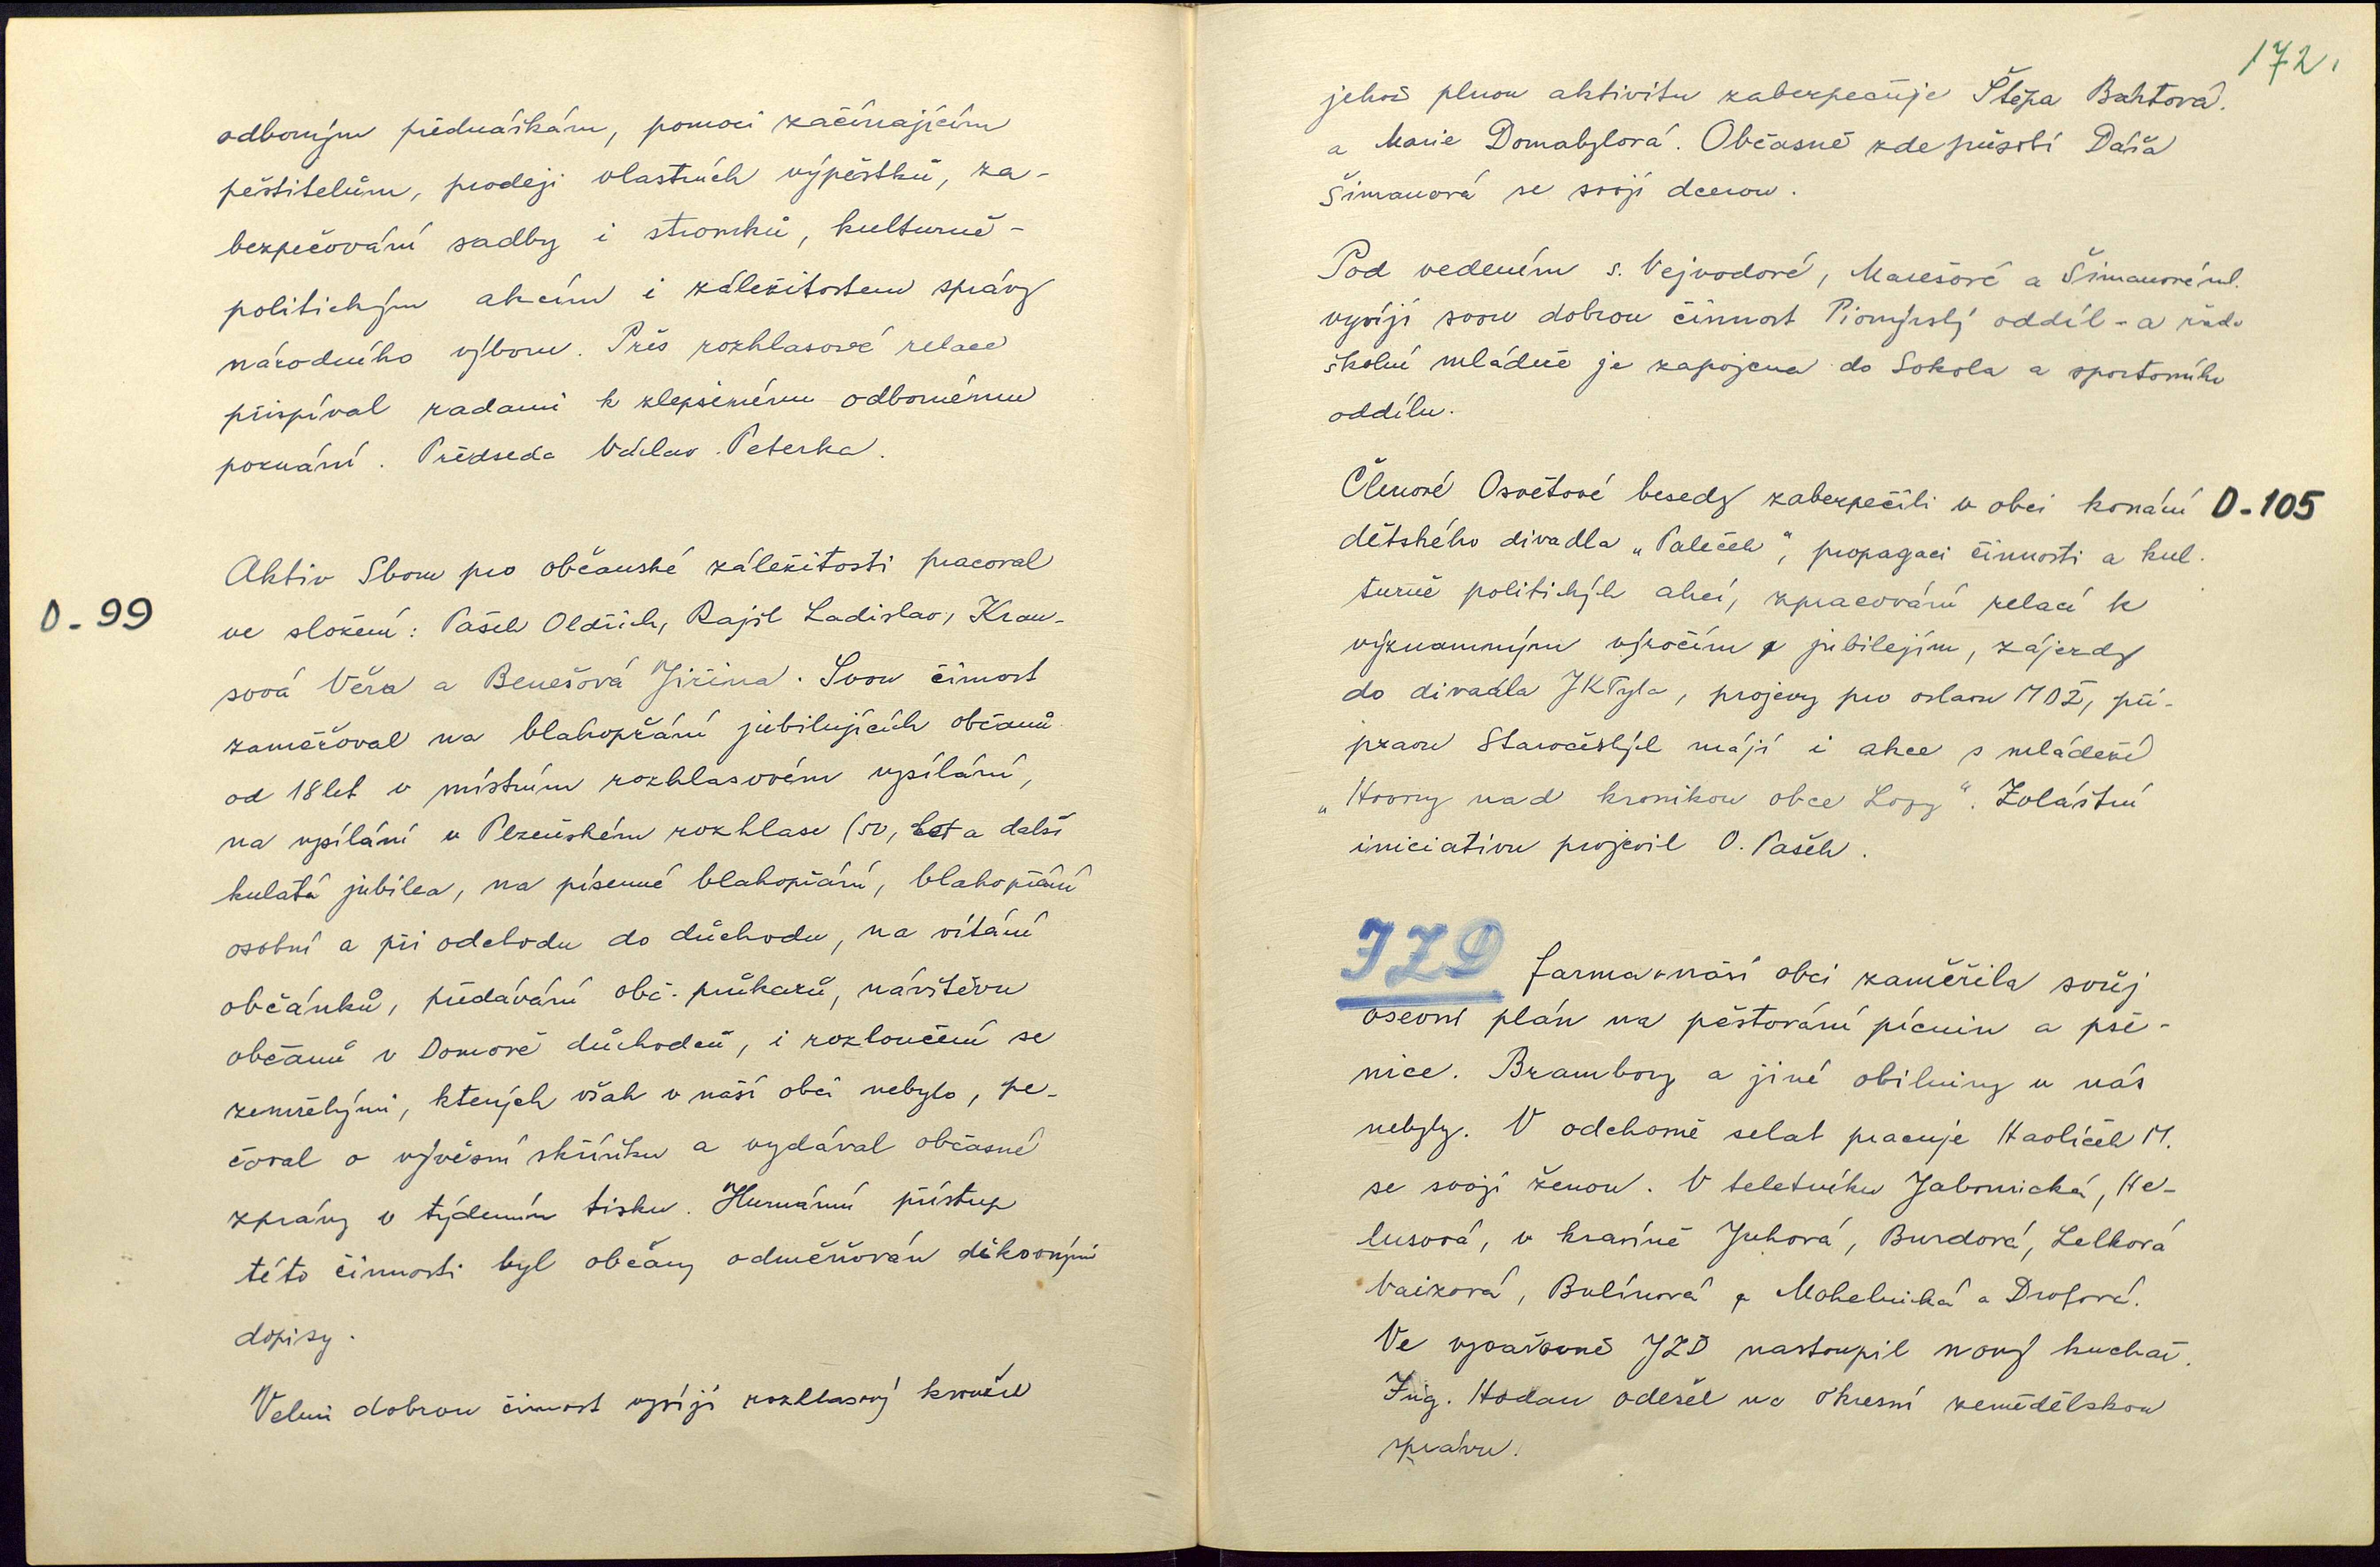 odborným přednáškám, pomoci začínajícím
pěstitelům, prodeji vlastních výpěstků, za-
bezpečování sadby i stromků, kulturně-
politickým akcím i záležitostem správy
národního výboru. Přes rozhlasové relace
přispíval radami k zlepšenému odbornému
poznání. Předseda Václav Peterka.
Aktiv Sboru pro občanské záležitosti pracoval
D-99
ve složení: Pašek Oldřich, Rajšl Ladislav, Krau-
sová Věra a Benešová Jiřina. Svou činost
zaměřoval na blahopřání jubilujících občanů
od 18 let v místním rozhlasovém vysílání,
na vysílání v Plzeňském rozhlase (50, let a další
kulatá jubilea, na písemné blahopřání, blahopřání
osobní a při odchodu do důchodu, na vítání
občánků, předávání obč. průkazů, návštěvu
občanů v Domově důchodců, i rozloučení se
zemřelými, kterých však v naší obci nebylo, pe-
čoval o vývěsní skříňku a vydával občasné
zprávy v týdenním tisku. Humánní přístup
této činnosti byl občany odměňován děkovnými
dopisy.
Velmi dobrou činost vyvíjí rozhlasový kroužek
172.
jehož plnou aktivitu zabezpečuje Štěpa Bahtová.
a Marie Domabylová. Občasně zde působí Dáša
Šimanová se svojí dcerou.
Pod vedením s. Vejvodové, Marešové a Šimanové ml.
vyvíjí svou dobrou činnost Pionýrský oddíl - a řada
školní mládeže je zapojena do Sokola a sportovního
oddílu.
Členové Osvětové besedy zabezpečili v obci konání D-105
dětského divadla „Paleček", propagaci činnosti a kul-
turně politických akcí, zpracování relací k
významným výročím a jubilejím, zájezdy
do divadla JKTyla, projevy pro oslavu MDŽ, pří-
pravu Staročeských májí i akce s mládeží
„Hovory nad kronikou obce Lozy". Zvláštní
iniciativu projevil O. Pašek.
JZD farma v naší obci zaměřila svůj
osevní plán na pěstování pícnin a pše-
nice. Brambory a jiné obilniny u nás
nebyly. V odchovně selat pracuje Havlíček M.
se svojí ženou. V teletníku Jabornická, He-
lusová, v kravíně Juhová, Burdová, Lelková
Vaizová, Bulínová a Mohelnická a Drofová.
Ve vyvařovně JZD nastoupil nový kuchař.
Ing. Hodan odešel na Okresní zemědělskou
správu.